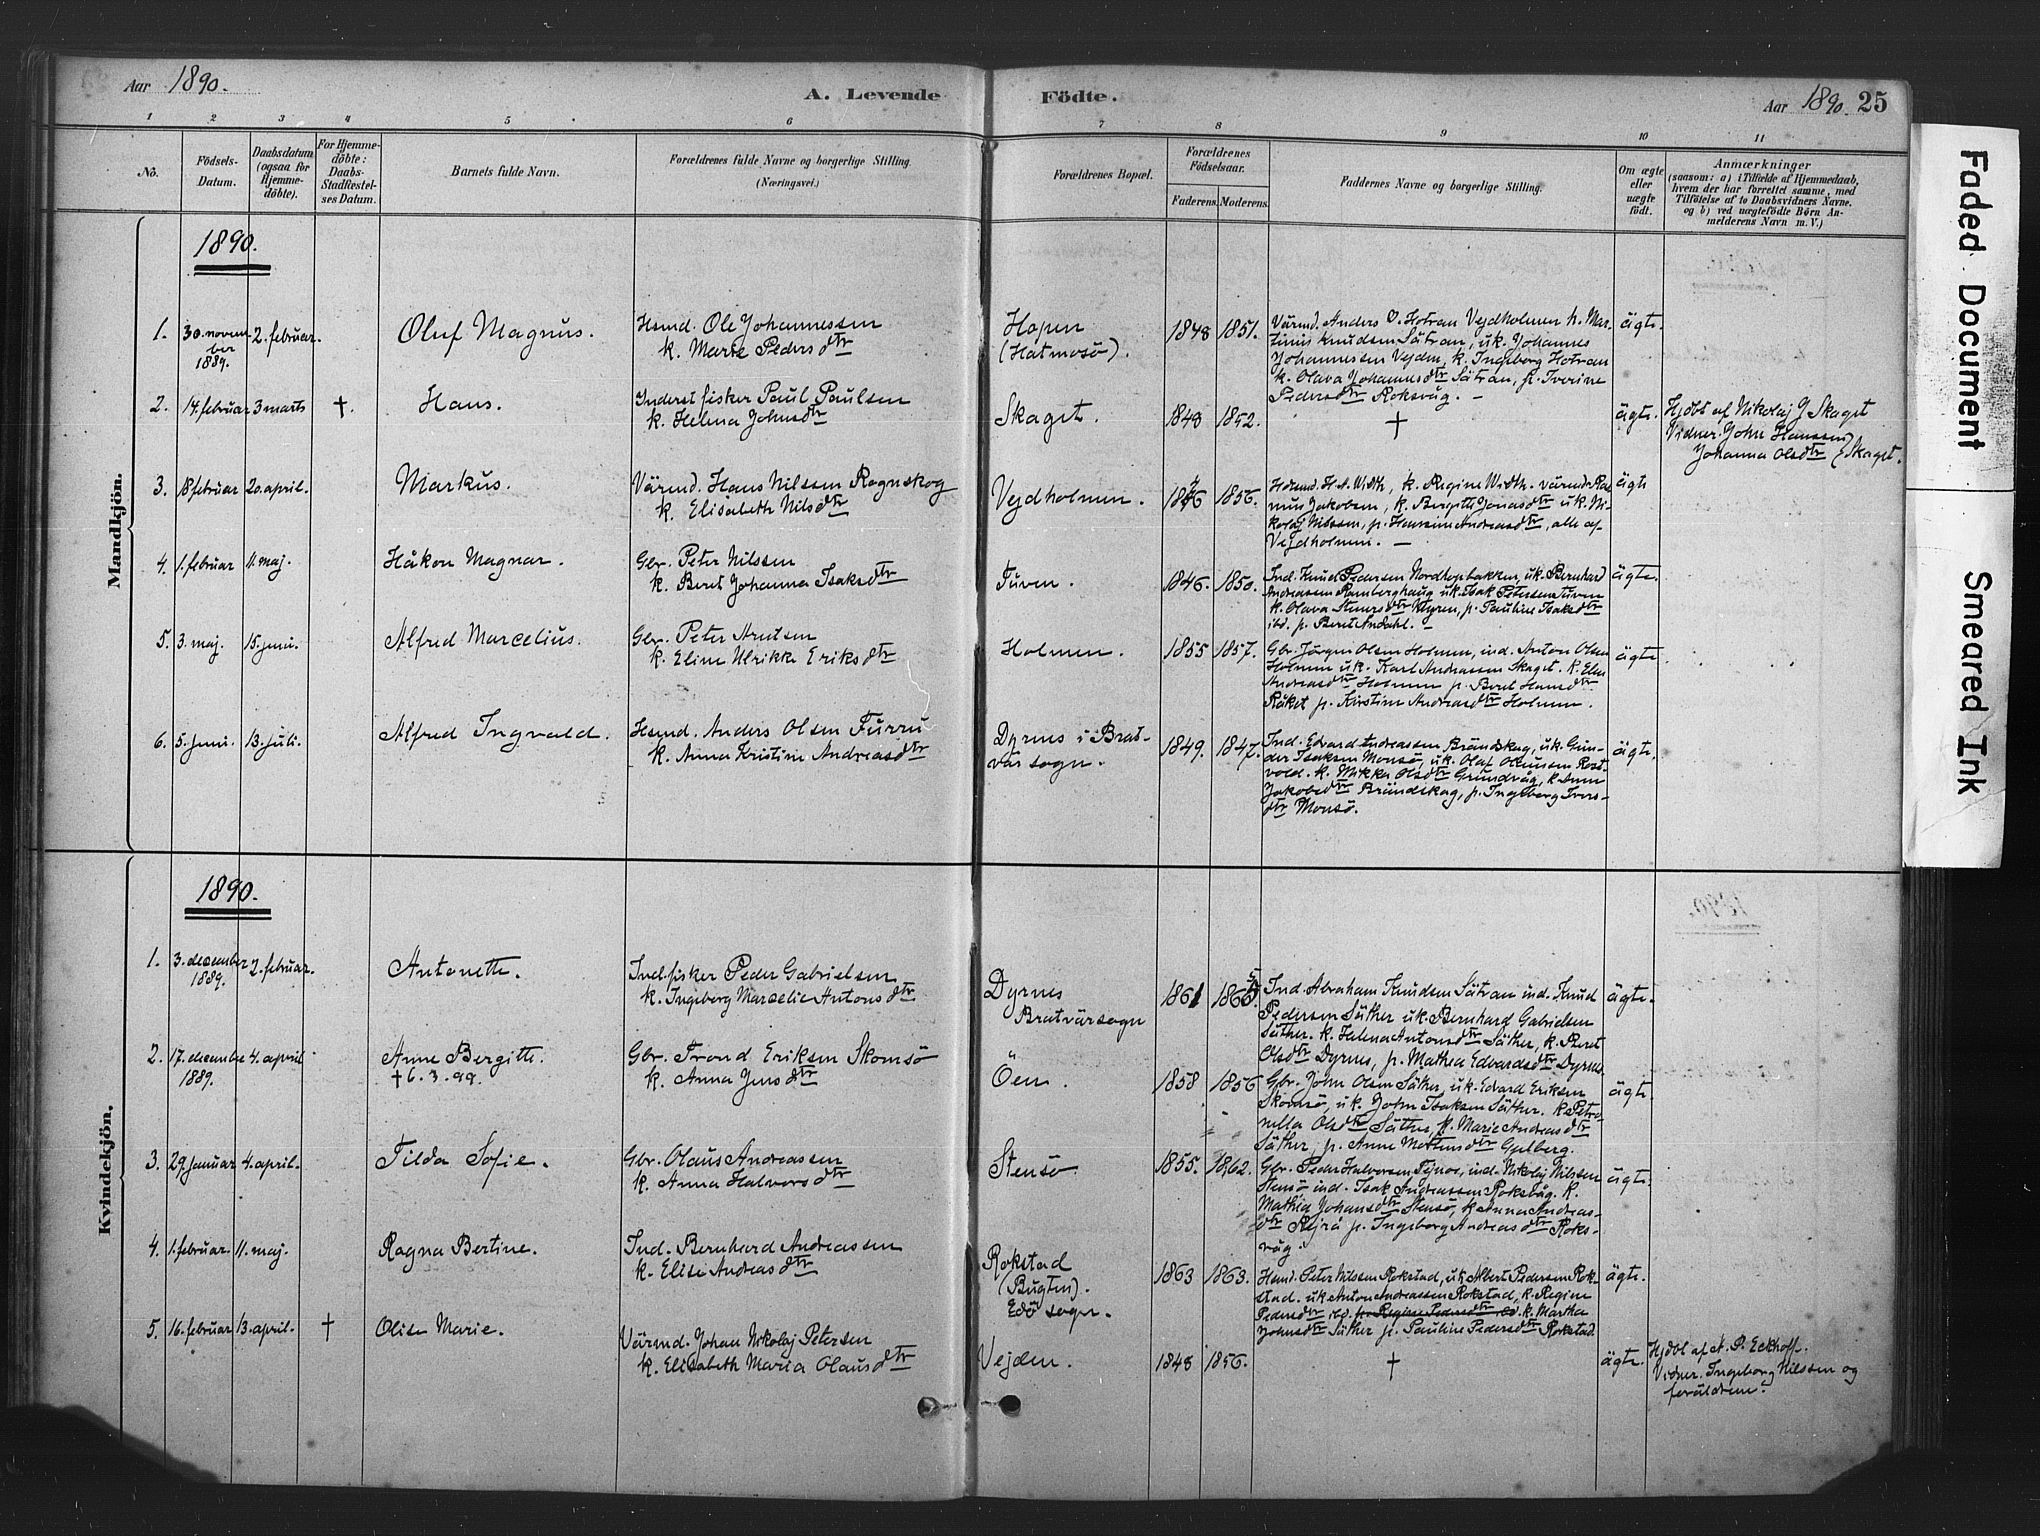 Aar 1890.
A. Levende Födte.
Aar 1890. 25
1 2 3 4 5 6 7 8 9 10 11
No.
Födsels-Datum.
Daabsdatum (ogsaa for Hjemme-döbte).
For Hjemme-döbte: Daabs-Stadfæstel-ses Datum.
Barnets fulde Navn.
Forældrenes fulde Navne og borgerlige Stilling. (Næringsvei.)
Forældrenes Bopæl.
Forældrenes Födselsaar.
Faderens. Moderens.
Faddernes Navne og borgerlige Stilling.
Om ægte eller uægte födt.
Anmærkninger
(saasom: a) i Tilfælde af Hjemmedaab,
hvem der har forrettet samme, med
Tilföielse af to Daabsvidners Navne.
og b) ved uægtefödte Börn An-
melderens Navn m. V.)
Mandkjön.
1890.
1. 30. novem-ber 1889. 2. februar. Oluf Magnus.
Hsmd. Ole Johannessen
k. Marie Pedersdtr
Hopen
(Hatmosö).
1848 1851.
Värmd. Anders O. Hotran Vejdholmen h. Mar-
tinus Knudsen Sätran, uk. Johannes
Johannessen Vejden, k. Ingeborg Hotran
k. Olava Johannesdtr Sätran, p. Iverine
Pedersdtr Roksvåg. —
ägte.
2. 14. februar 3 marts †. Hans.
Inderst fisker Paul Paulsen
k. Helena Johnsdtr
Skaget.
1848 1852.
†
ägte.
Hjdbt af Nikolaj J Skaget
Vidner. John Hanssen
Johanna Olsdtr } Skaget.
3. 18 februar 20. april. Markus.
Värmd. Hans Nilssen Rognskog
k. Elisabeth Nilsdtr
Vejdholmen.
1856.
k. Regine Wirth. värmd. Ras-
mus Jakobsen, k. Bergitte Jonasdtr uk. Ni-
kolaj Nilssen, p. Hansine Andreasdtr, alle af
Vejdholmen. —
ägte
4. 1. februar 11. maj. Håkon Magnar.
Gbr. Peter Nilssen
k. Beret Johanna Isaksdtr
Tuven.
1846. 1850.
Ind. Knud Pedersen Nordhopbakken, uk. Bernhard
Andreassen Ramberghaug uk. Isak Petersen Tuven
k. Olava Steversdtr Myren, p. Pauline Isaksdtr
ibd. p. Beret Andahl. —
ägte.
5. 3. maj. 15. juni. Alfred Marcelius.
Gbr. Peter Arntsen
k. Eline Ulrikke Eriksdtr
Holmen.
1855 1857.
Gbr. Jörgen Olsen Holmen, ind. Anton Olsen
Holmen uk. Karl Andreassen Skaget. k. Elen
Andreasdtr Holmen p. Beret Hansdtr
Råket p. Kirstine Andreasdtr Holmen.
ägte
6. 5. juni. 13. juli. Alfred Ingvald.
Hsmd. Anders Olsen Furru
k. Anna Kristine Andreasdtr
Dyrnes i Brat-
vär sogn.
1849. 1847.
Ind. Edvard Andreassen Brändskag, uk. Gun-
der Isaksen Monsö, uk. Olaf Olausen Rost-
vold. k. Mikka Olsdtr Grundvåg, k. Anne
Jakobsdtr Brändskag, p. Ingeborg Ivers-
dtr Monsö.
ägte.
Kvindekjön.
1890.
1. 3. december 1889. 2. februar. Antonette.
Ind. fisker Peder Gabrielsen
k. Ingeborg Marcelie Antonsdtr
Dyrnes
Bratvärsogn
1861
Ind. Abraham Knudsen Sätran ind. Knud
Pedersen Säther uk. Bernhard Gabrielsen
Säther. k. Halena Antonsdtr Säther, k. Beret
Olsdtr Dyrnes, p. Mathea Edvardsdtr Dyrnes
ägte.
2. 17. decembe 1889. 4. april Anne Bergitte.
† 6. 3. 99.
Gbr. Trond Eriksen Skomsö
k. Anna Jensdtr
Öen.
1858 1856
Gbr. John Olsen Säther, uk. Edvard Eriksen
Skomsö, uk. John Isaksen Säther. k. Petro-
nella Olsdtr Säther, k. Marie Andreasdtr
Säther, p. Anne Mortensdtr Gulberg.
ägte.
3. 29 januar 4. april. Tilda Sofie.
Gbr. Olaus Andreassen
k. Anna Halvorsdtr
Stensö
1855. 1862.
Gbr. Peder Halvorsen, ind. Nikolaj Nilssen
Stensö ind. Isak Andreassen Roksvåg. k.
Mathea Johansdtr Stensö, k. Anna Andreas-
dtr Rejrå p. Ingeborg Andreasdtr Roks-
våg.
ägte.
4. 1. februar. 11. maj. Ragna Bertine.
Ind. Bernhard Andreassen
k. Elise Andreasdtr
Rokstad
(Bugten).
Edö sogn.
1863 1863.
Hsmd. Peter Nilssen Rokstad, uk. Albert Pedersen Rok-
stad. uk. Anton Andreassen Rokstad, k. Regine
Pedersdtr ibd. k. Martha
Johnsdtr Säther p. Pauline Pedersdtr Rokstad
ägte.
5. 16. februar 13. april. † Olise Marie.
Värmd. Johan Nikolaj Petersen
k. Elisabeth Maria Olausdtr
Vejden.
1848 1856.
†
ägte.
Hjdbt af N. P. Eckhoff.
Vidner. Ingeborg Nilssen og
foräldrene.
Faded Document
Smeared Ink